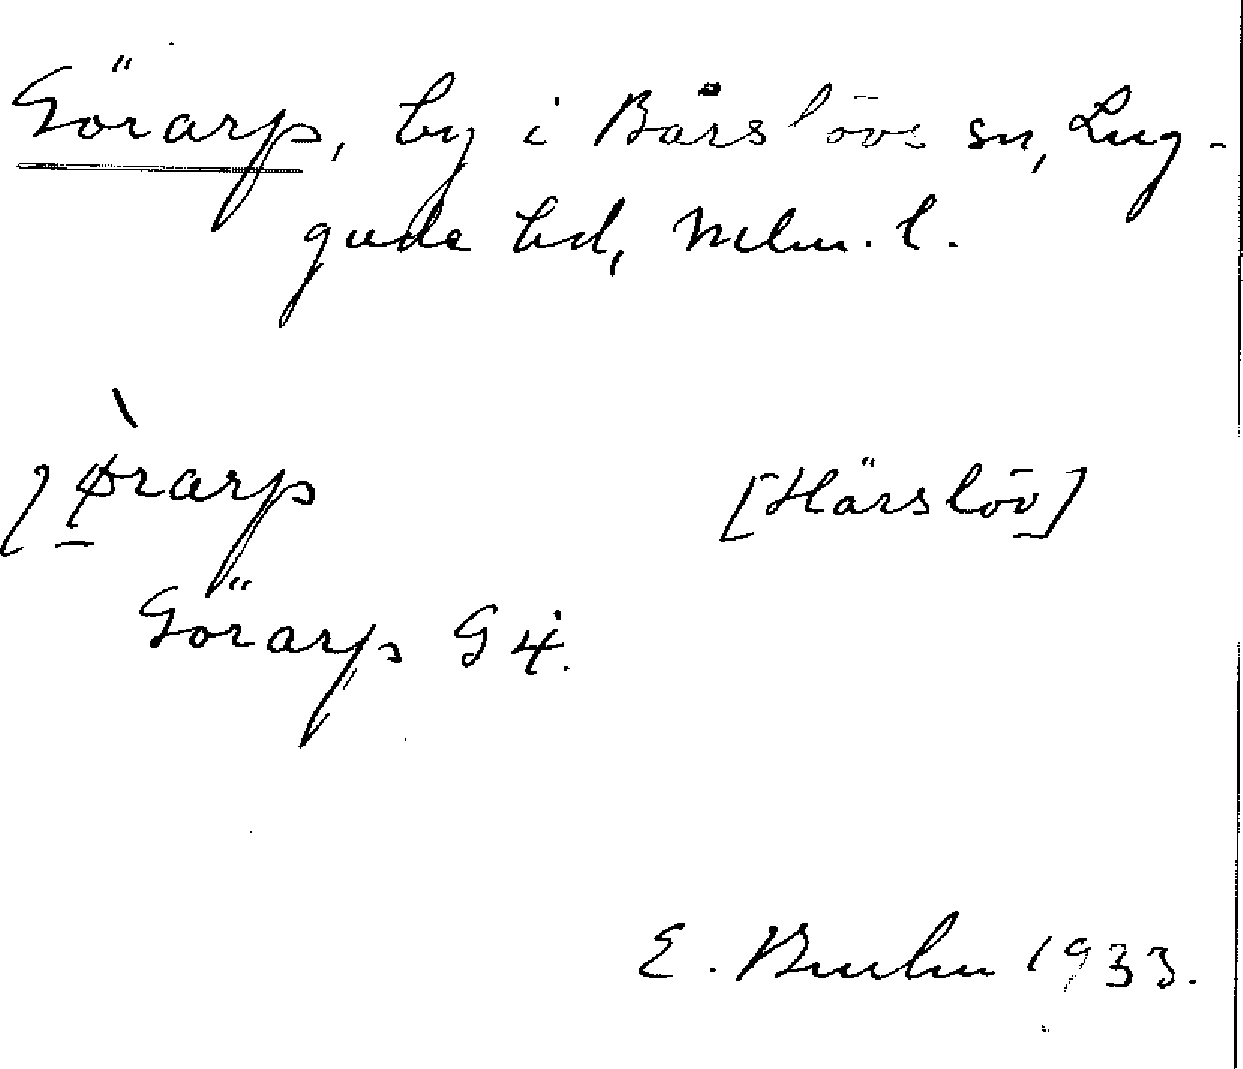 Görarp, by i Bårslövs sn, Lug-
gude hd, Mlm. l.
Ørarp [Härslöv]
Görarp G4.
E. Bruhn 1933.